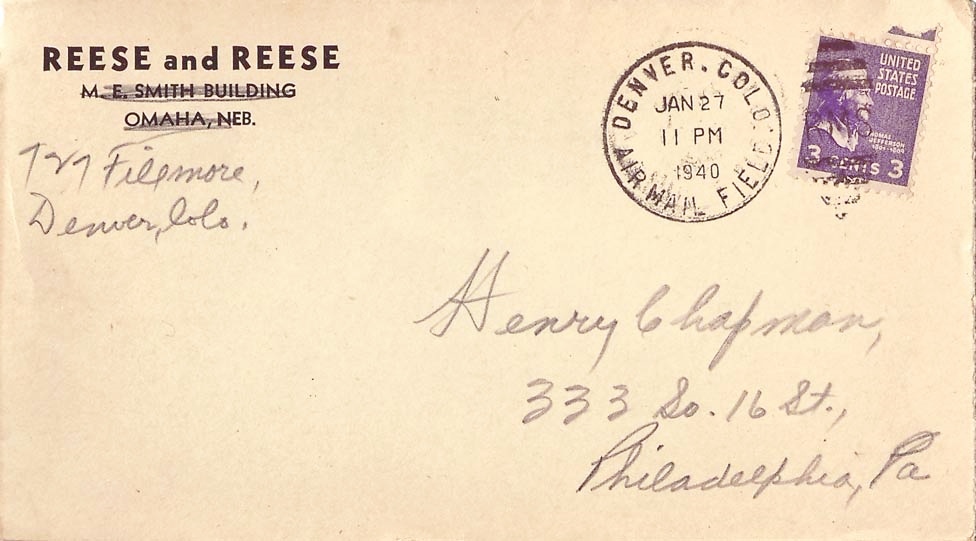 REESE and REESE
M. E. SMITH BUILDING
OMAHA, NEB.
727 Fillmore,
Denver, Colo.
DENVER. COLO.
JAN 27
11 PM
1940
AIR MAIL FIELD
UNITED
STATES
POSTAGE
THOMAS
JEFFERSON
1801-1809
3 CENTS 3
Henry Chapman,
333 So. 16 St.,
Philadelphia, Pa